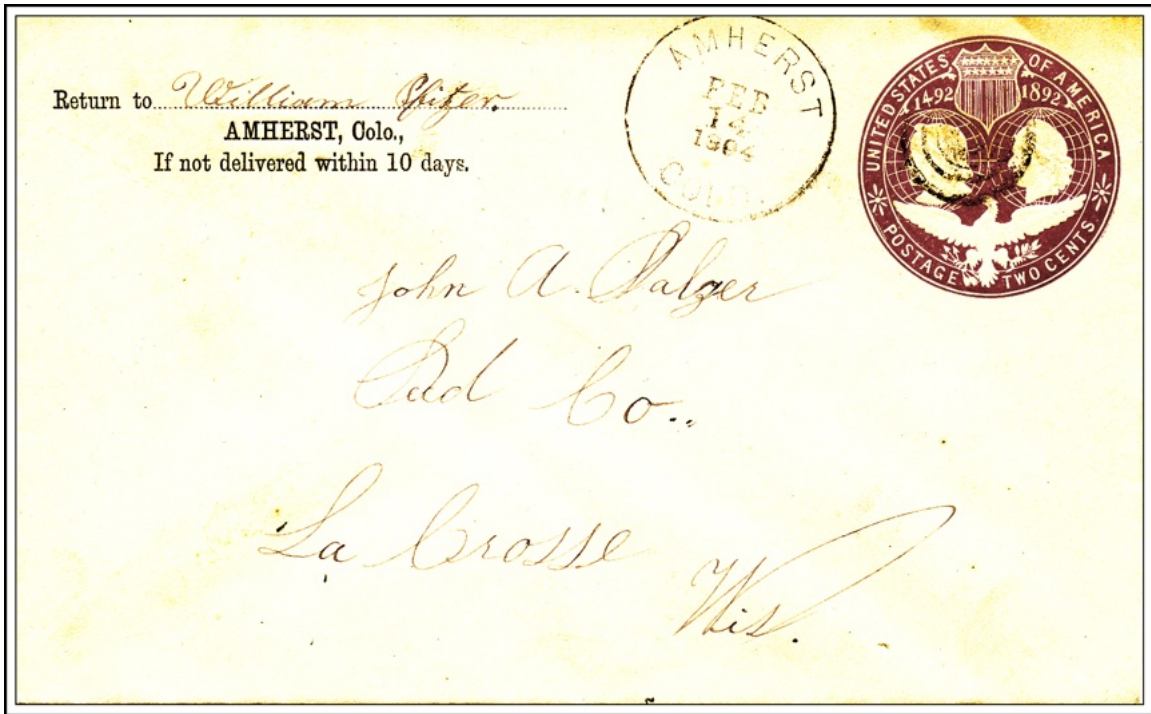 Return to William Pfizer.
AMHERST, Colo.,
If not delivered within 10 days.
AMHERST
FEB
14
1894
COLO.
UNITED STATES OF AMERICA
1492 1892
POSTAGE TWO CENTS
John A. Salzer
Sed Co.
La Crosse
Wis.